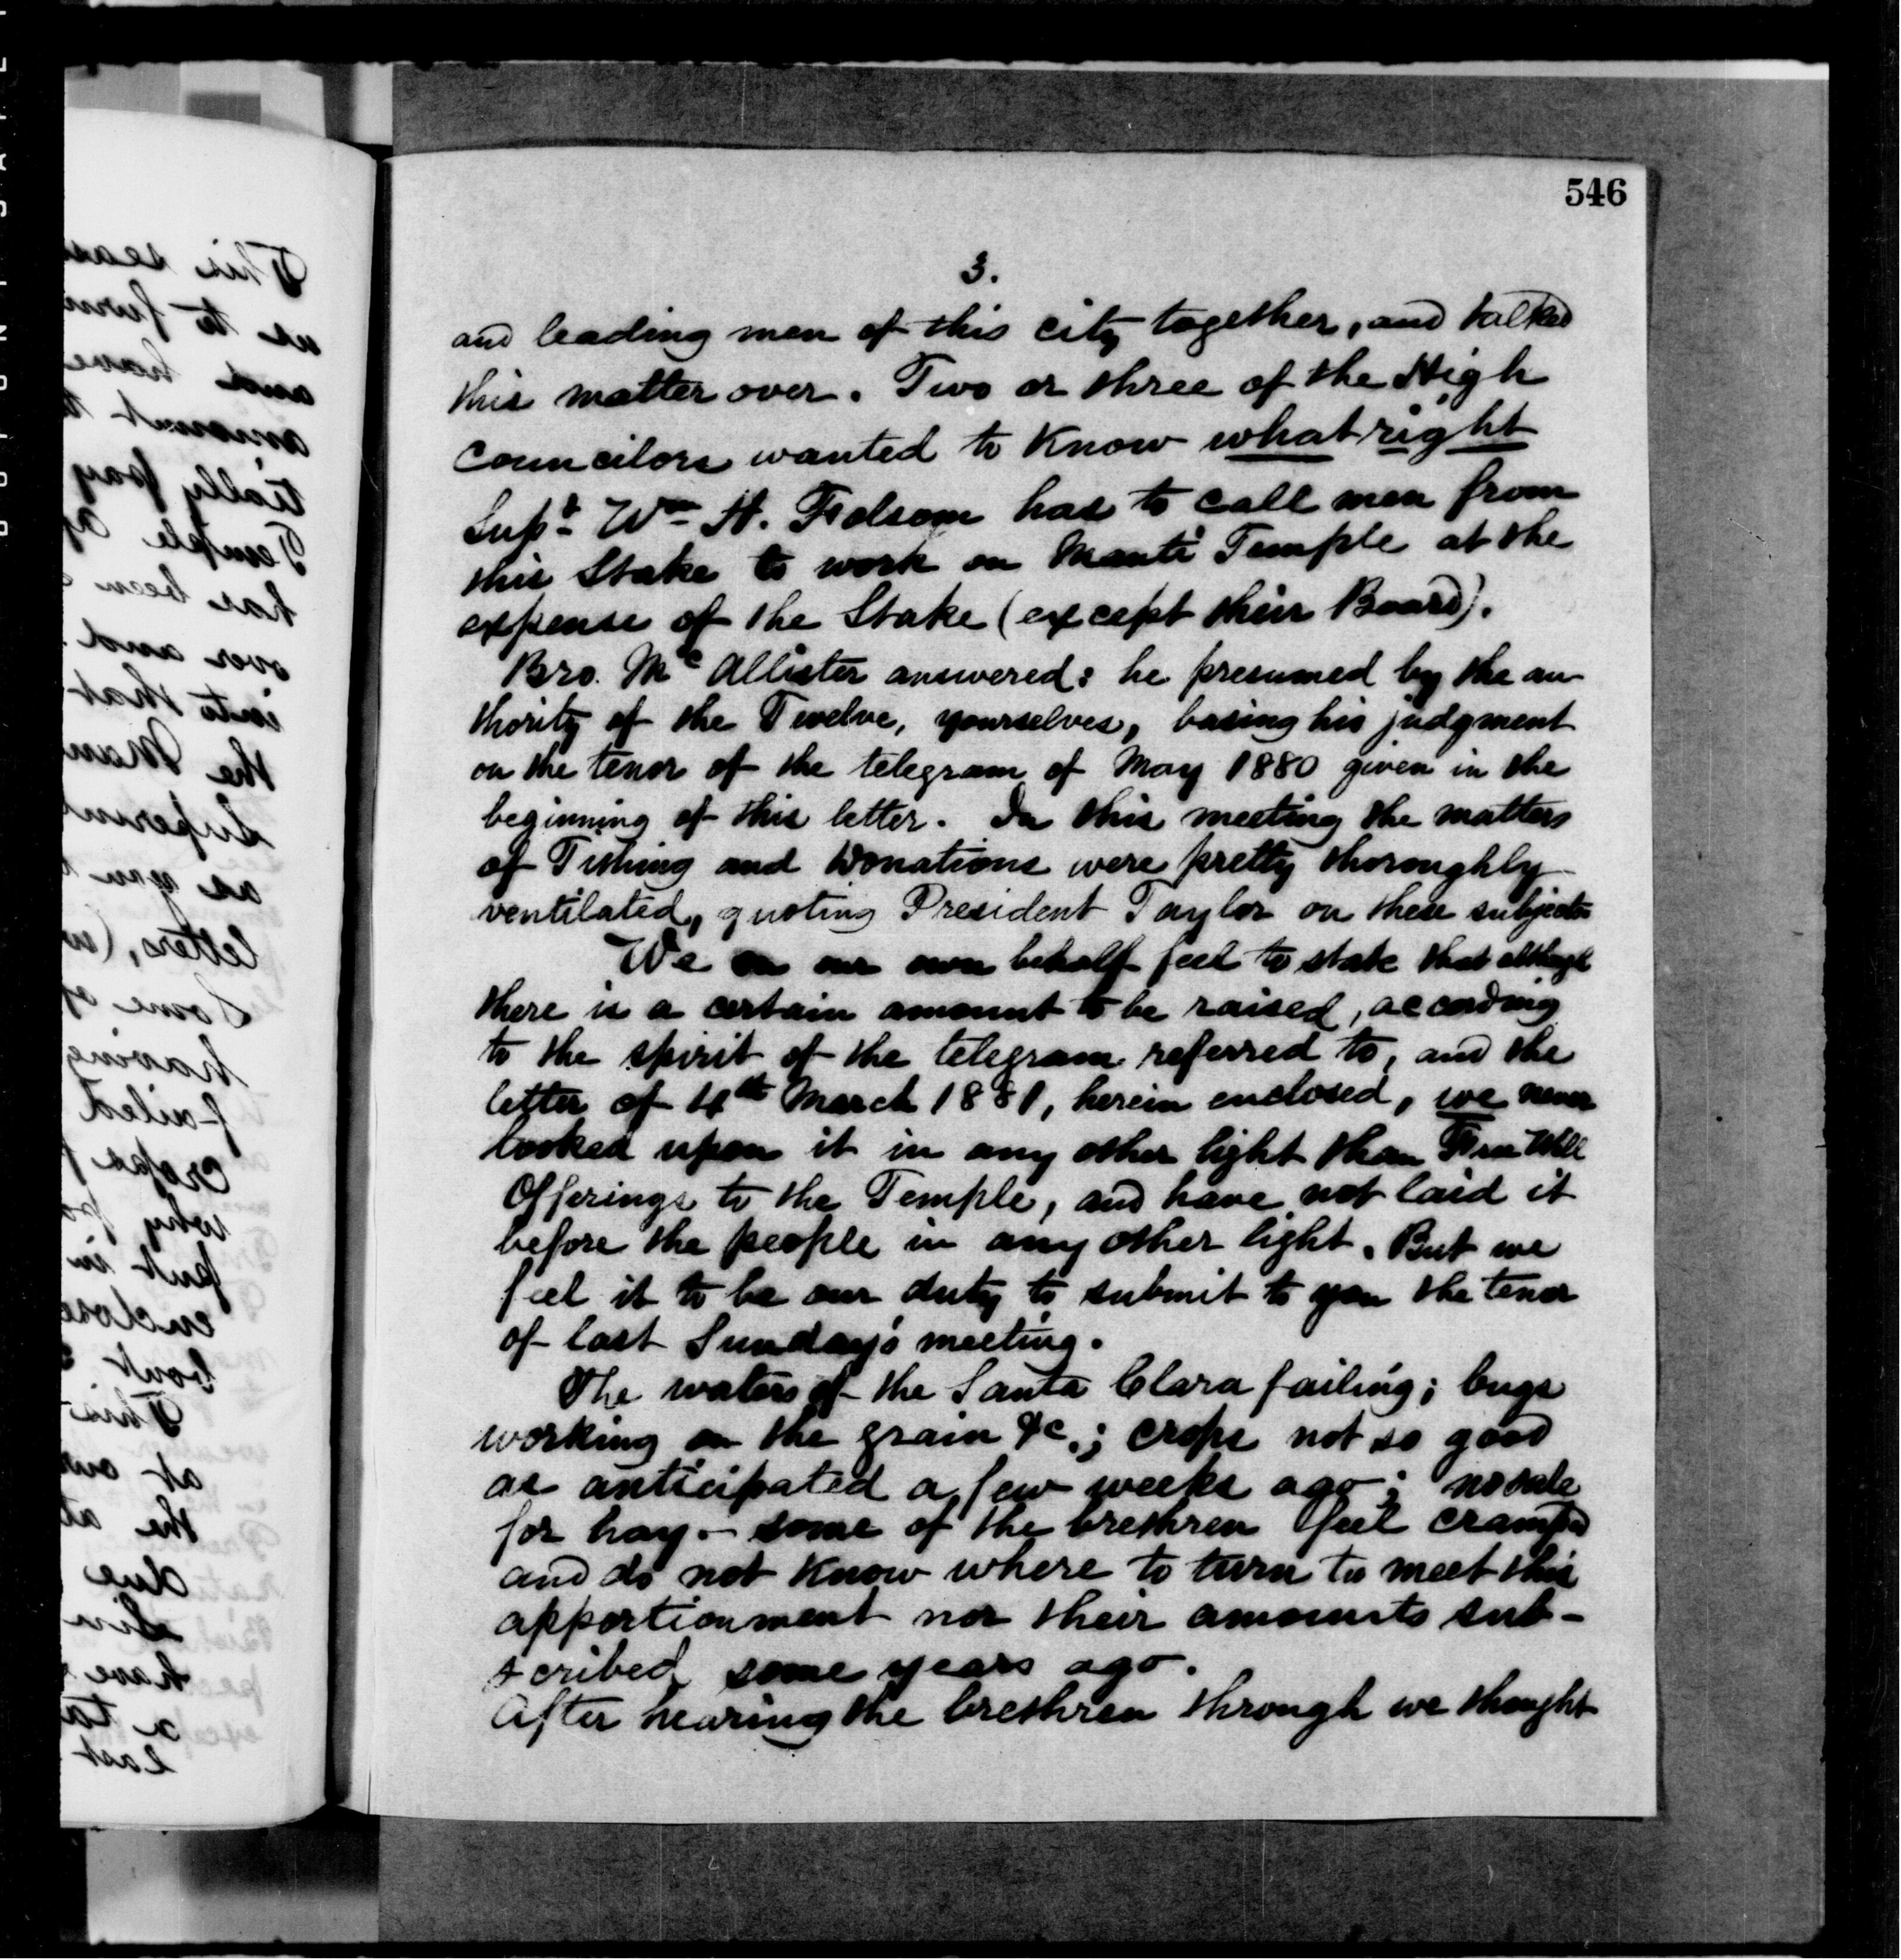 546
3.
and leading men of this city together, and talked
this matter over. Two or three of the High
Councilors wanted to Know what right
Supt. Wm H. Folsom has to call men from
this Stake to work on Manti Temple at the
expense of the Stake (except their Board).
Bro. McAllister answered: he presumed by the au-
thority of the Twelve, yourselves, basing his judgment
on the tenor of the telegram of May 1880 given in the
beginning of this letter. In this meeting the matters
of Tithing and Donations were pretty thoroughly
ventilated, quoting President Taylor on these subjects
We on our own behalf feel to state that although
there is a certain amount to be raised, according
to the spirit of the telegram referred to, and the
letter of 4th March 1881, herein enclosed, we never
looked upon it in any other light than Free Will
Offerings to the Temple, and have not laid it
before the people in any other light. But we
feel it to be our duty to submit to you the tenor
of last Sunday's meeting.
The waters of the Santa Clara failing; bugs
working on the grain &c.; crops not so good
as anticipated a few weeks ago; no sale
for hay. - some of the brethren feel cramped
and do not Know where to turn to meet this
apportionment nor their amounts sub-
scribed some years ago.
After hearing the brethren through we thought
This seas
us to furn
and have
amount t
tially pay
Temple
has been
over and
into that
the Man
Superint
as you
letters, (w
Some of
having
failed
crops
why
put in
enclose
bout
This
at our
the at
due
have
a ta
last